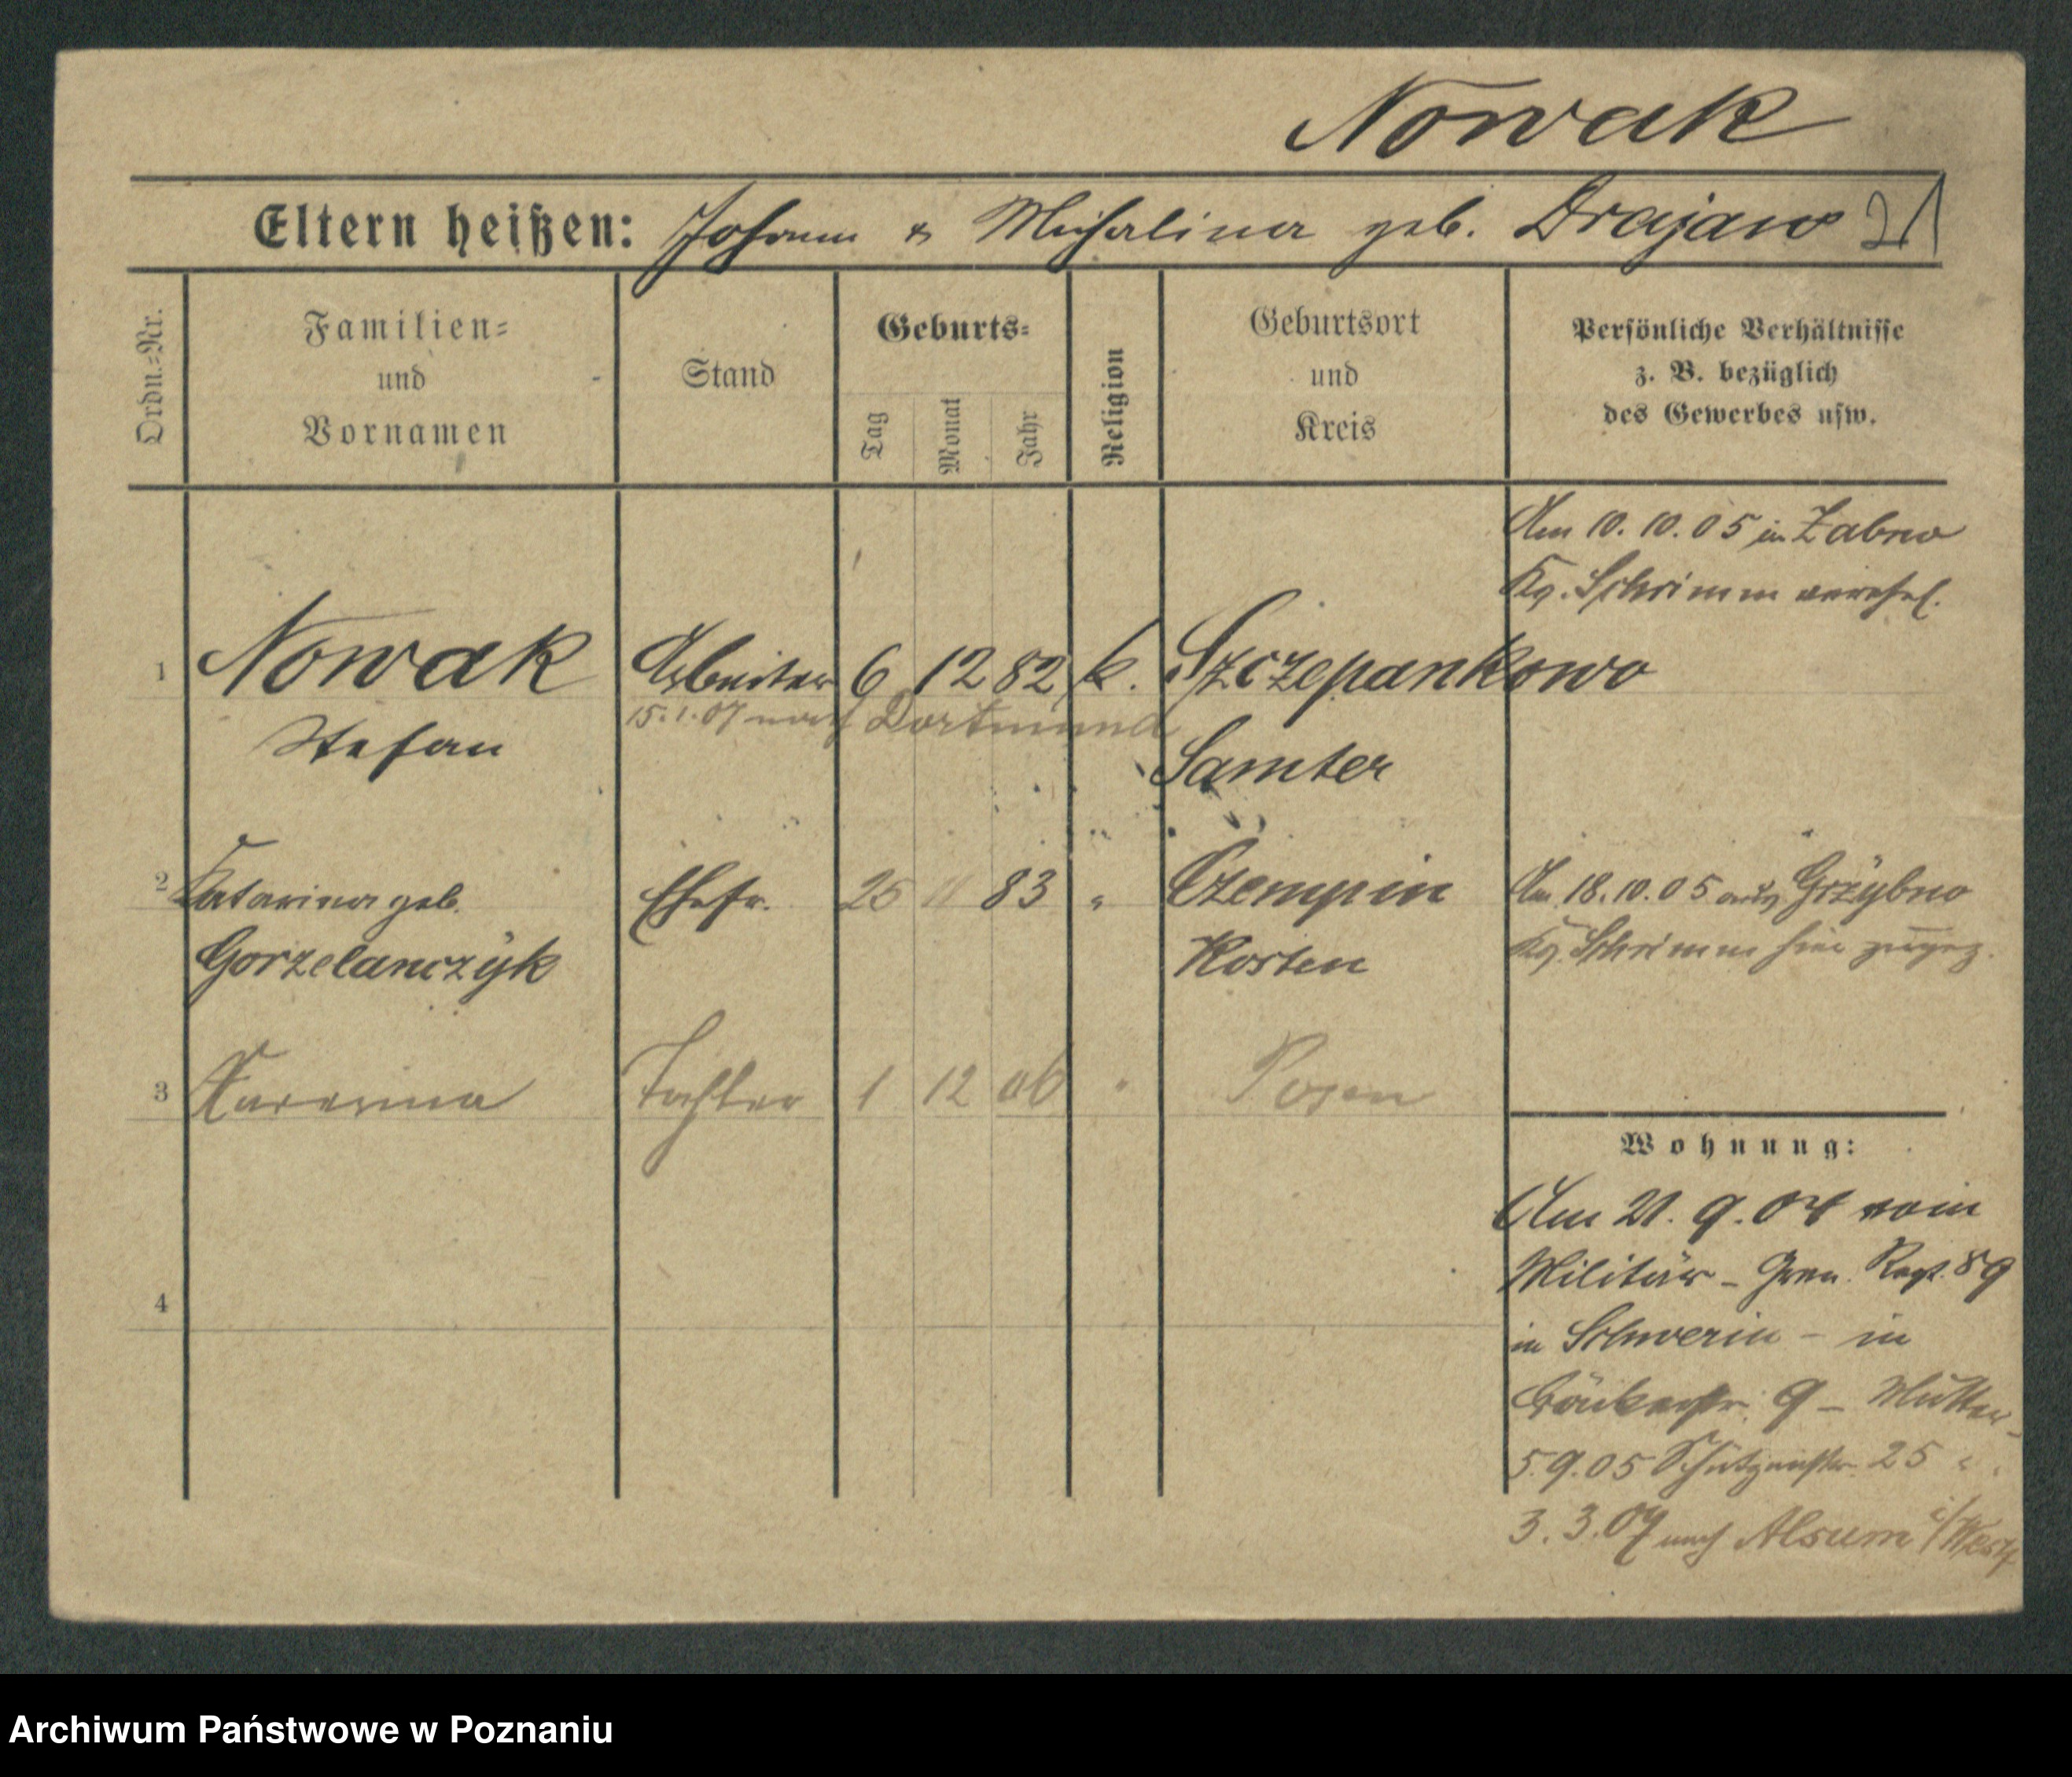 Nowak
Eltern heißen: Johann & Michalina geb. Drajano 21
Ordn.-Nr.
Familien-
und
Vornamen
Stand
Geburts-
Tag
Monat
Jahr
Religion
Geburtsort
und
Kreis
Persönliche Verhältnisse
z. B. bezüglich
des Gewerbes usw.
Am 10.10.05 in Zabno
Kr. Schrimm verehel.
1 Nowak Arbeiter 6 12 82 k. Szczepankowo
15.1.07 nach Dortmund
Stefan Samter
2 Katarina geb. Ehefr. 25 11 83 " Czempin Am 18.10.05 aus Grzÿbno
Gorzelanczÿk Kosten Kr. Schrimm hier zugez.
3 Tochter 1 12 06 " Posen
Wohnung:
Am 21.9.04 vom
Militär – Gren. Regt. 89
4
in Schwerin – in
Bäckerstr. 9 – Mutter
5.9.05 25 "
3.3.07 nach Alsum i/Westf
Archiwum Państwowe w Poznaniu